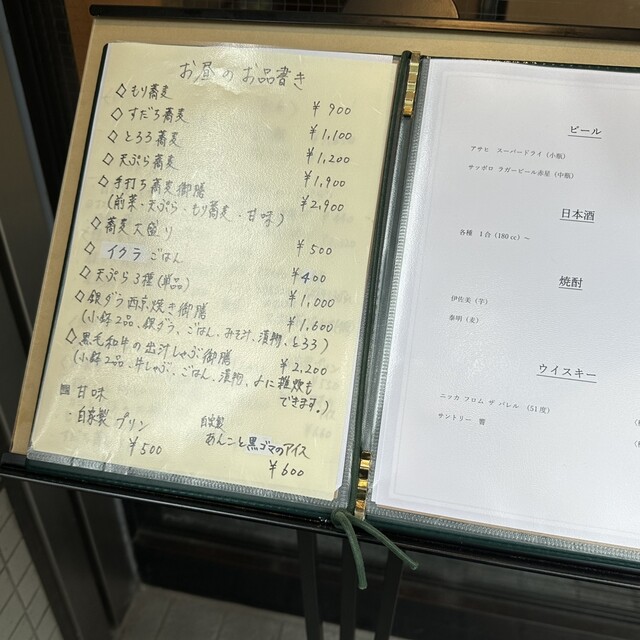 お昼のお品書き
◇もり蕎麦 ¥900
◇すだち蕎麦 ¥1,100
◇とろろ蕎麦 ¥1,200
◇天ぷら蕎麦 ¥1,900
◇手打ち蕎麦御膳 ¥2,900
(前菜・天ぷら・もり蕎麦・甘味)
◇蕎麦大盛り ¥500
◇イクラごはん ¥400
◇天ぷら3種(単品) ¥1,000
◇銀ダラ西京焼き御膳 ¥1,600
(小鉢2品、銀ダラ、ごはん、みそ汁、漬物、とろろ)
◇黒毛和牛の出汁しゃぶ御膳 ¥2,200
(小鉢2品、牛しゃぶ、ごはん、漬物、よに雑炊も
できます。)
甘味
・自家製プリン
¥500
自家製
あんこと黒ゴマのアイス
¥600
ビール
アサヒ スーパードライ(小瓶)
サッポロ ラガービール赤星(中瓶)
日本酒
各種 1合(180cc)~
焼酎
伊佐美(芋)
泰明(麦)
ウイスキー
ニッカ フロム ザ バレル(51度)
サントリー 響